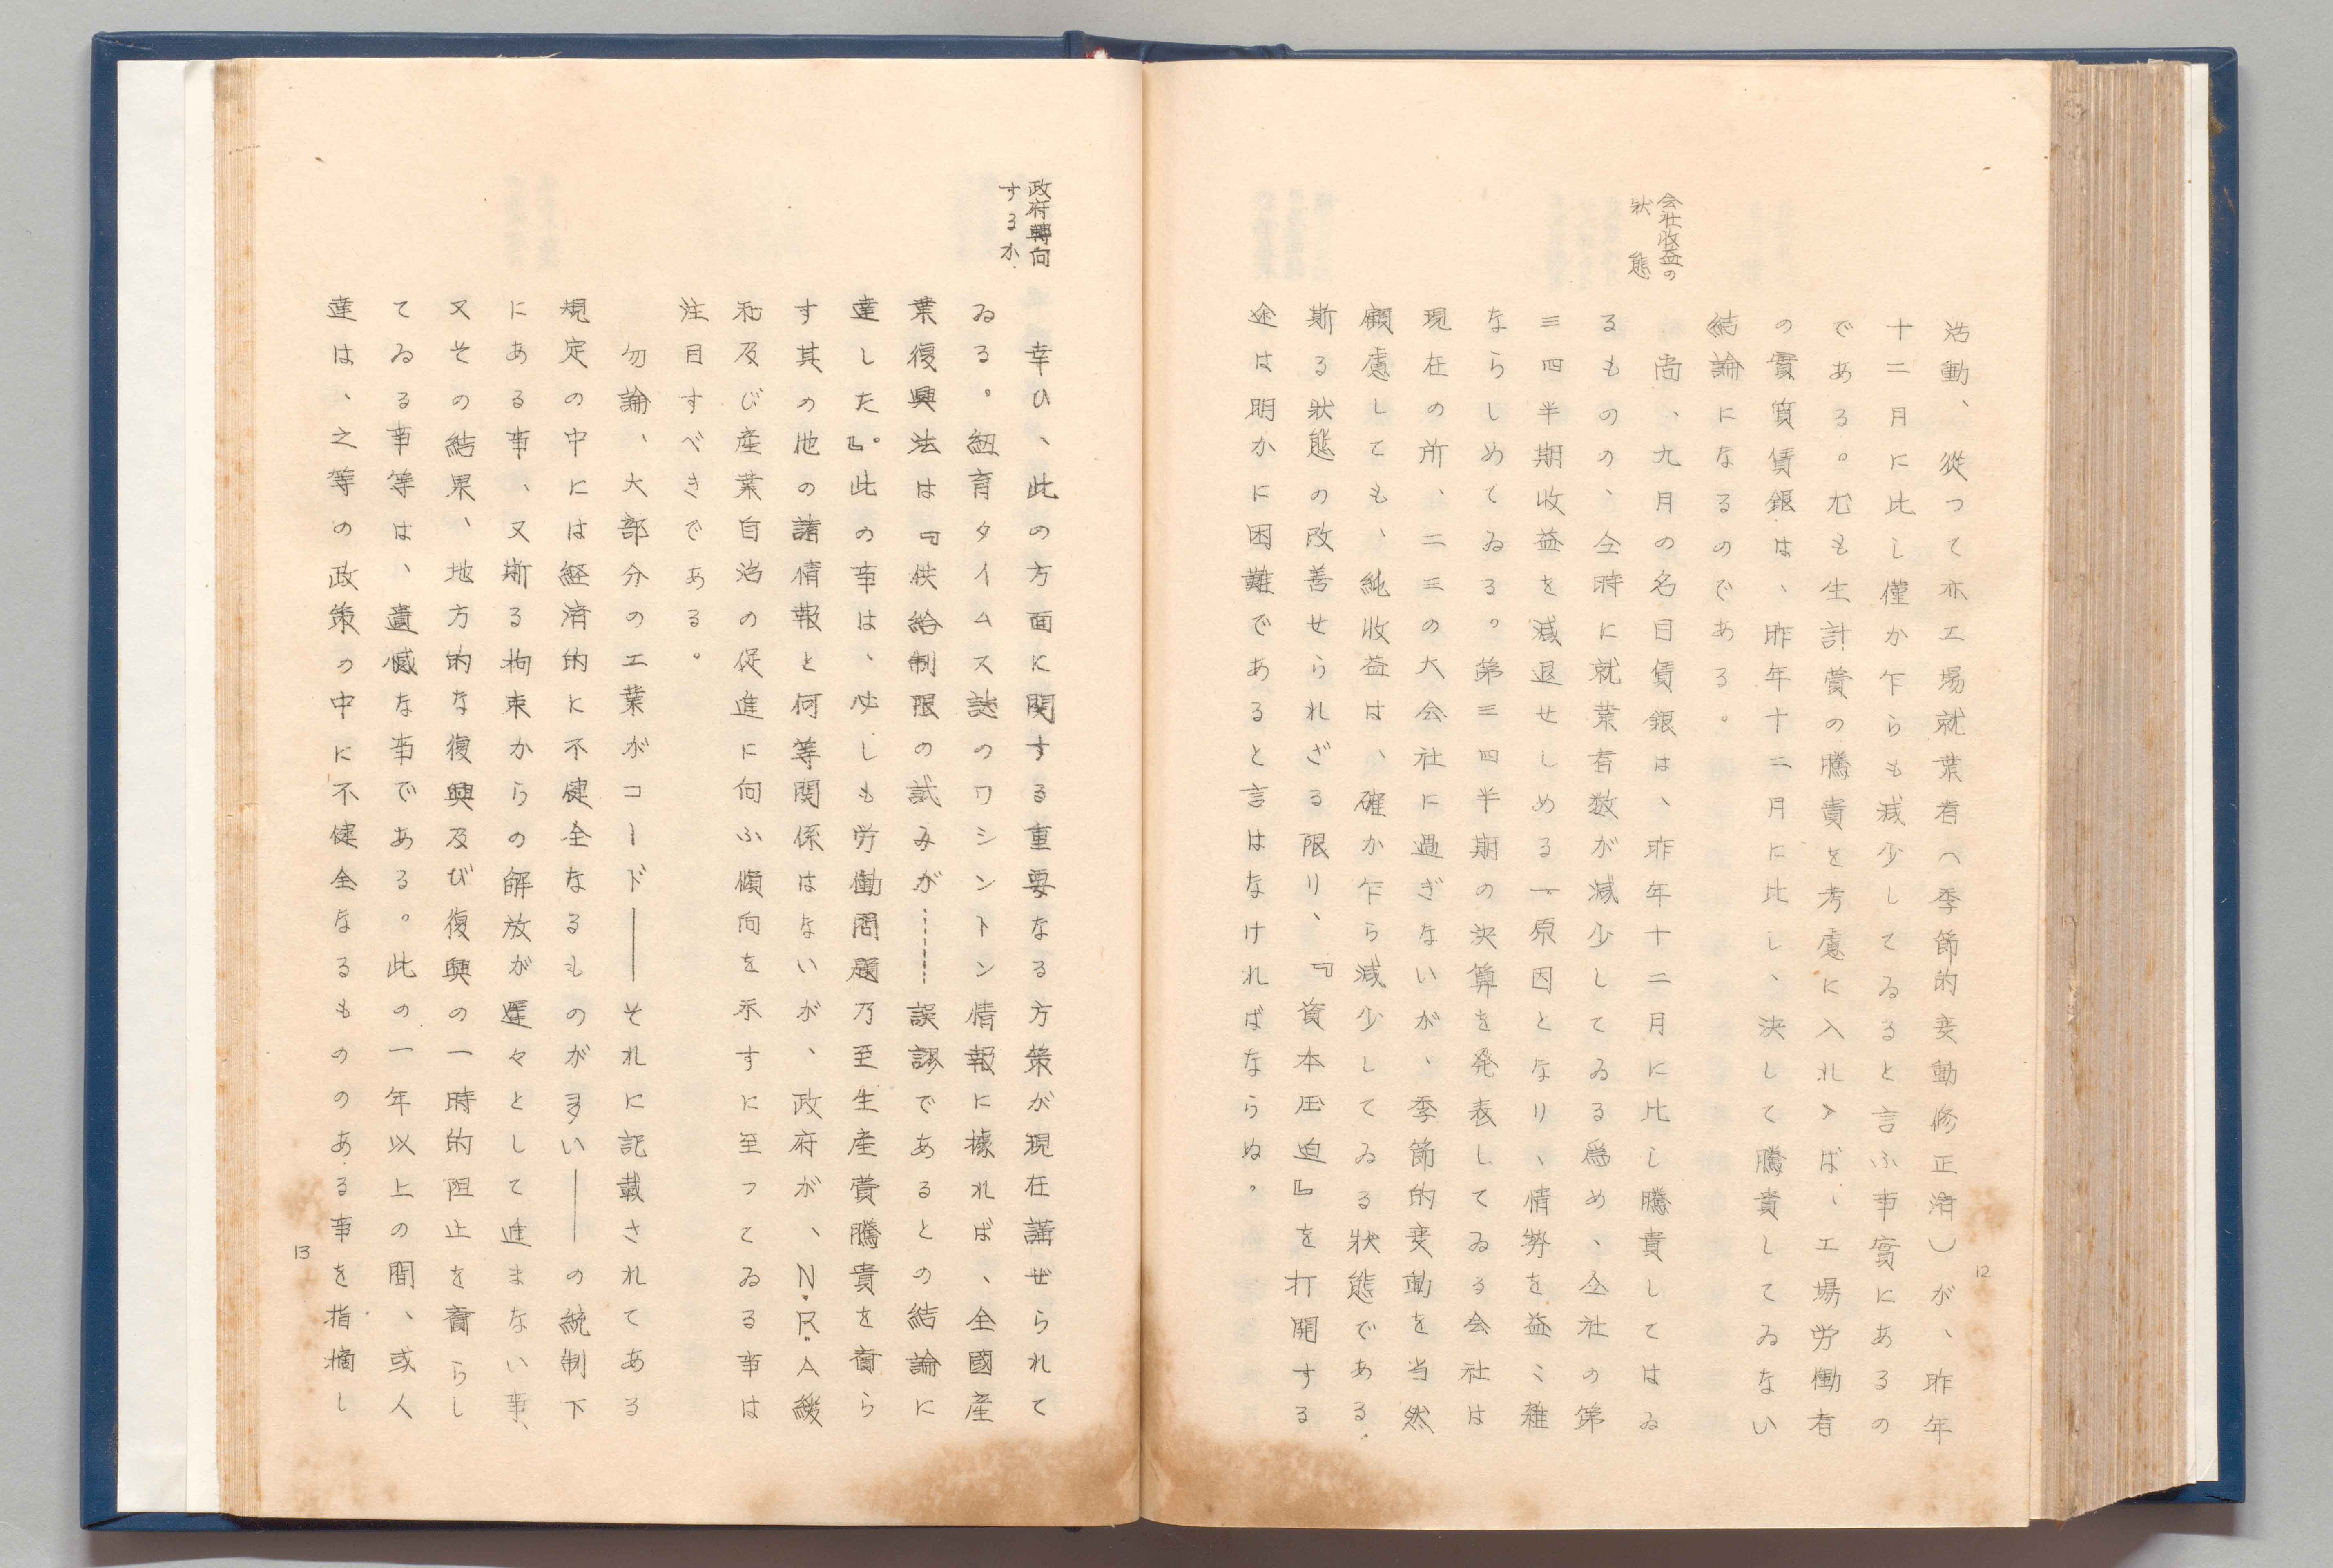 活動、従って亦工場就業者（季節的変動修正済）が、昨年
十二月に比し僅か乍らも減少してゐると言ふ事實にあるの
である。尤も生計費の騰貴を考慮に入れゝば、工場労働者
の實質賃銀は、昨年十二月に比し、決して騰貴してゐない
結論になるのである。
会社收益の
状態
尚、九月の名目賃銀は、昨年十二月に比し騰貴してはゐ
るものの、仝時に就業者数が減少してゐる爲め、仝社の第
三四半期收益を減退せしめる一原因となり、情勢を益〻雜
ならしめてゐる。第三四半期の決算を発表してゐる会社は
現在の所、二三の大会社に過ぎないが、季節的変動を当然
顧慮しても、純收益は、確か乍ら減少してゐる状態である.
斯る状態の改善せられざる限り、『資本圧迫』を打開する
途は明かに困難であると言はなければならぬ。
12
政府轉向
するか.
幸ひ、此の方面に関する重要なる方策が現在講ぜられて
ゐる。紐育タイムス誌のワシントン情報に據れば、全國産
業復興法は『供給制限の試みが……誤謬であるとの結論に
達した』。此の事は、必しも労働問題乃至生産費騰貴を齎ら
す其の他の諸情報と何等関係はないが、政府が、N.R.A緩
和及び産業自治の促進に向ふ傾向を示すに至ってゐる事は
注目すべきである。
勿論、大部分の工業がコード――それに記載されてある
規定の中には経済的に不健全なるものが多い――の統制下
にある事、又斯る拘束からの解放が遅々として進まない事、
又その結果、地方的な復興及び復興の一時的阻止を齎らし
てゐる事等は、遺憾な事である。此の一年以上の間、或人
達は、之等の政策の中に不健全なるもののある事を指摘し
13